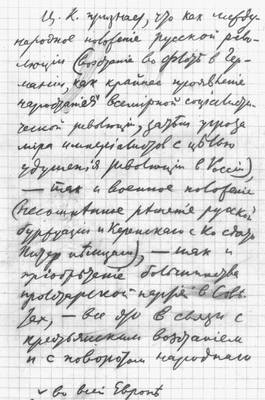 Ц. К. признает, что как между-
народное положение русской рево-
люции (восстание во флоте в Гер-
мании, как крайнее проявление
нарастания всемирной социалисти-
ческой революции, затем угроза
мира империалистов с целью
удушения революции в России),
— так и военное положение
(несомненное решение русской
буржуазии и Керенского с Ко сдать
Питер немцам), — так и
приобретение большинства
пролетарской партией в Сове-
тах, — все это в связи с
крестьянским восстанием
и с поворотом народного
во всей Европе